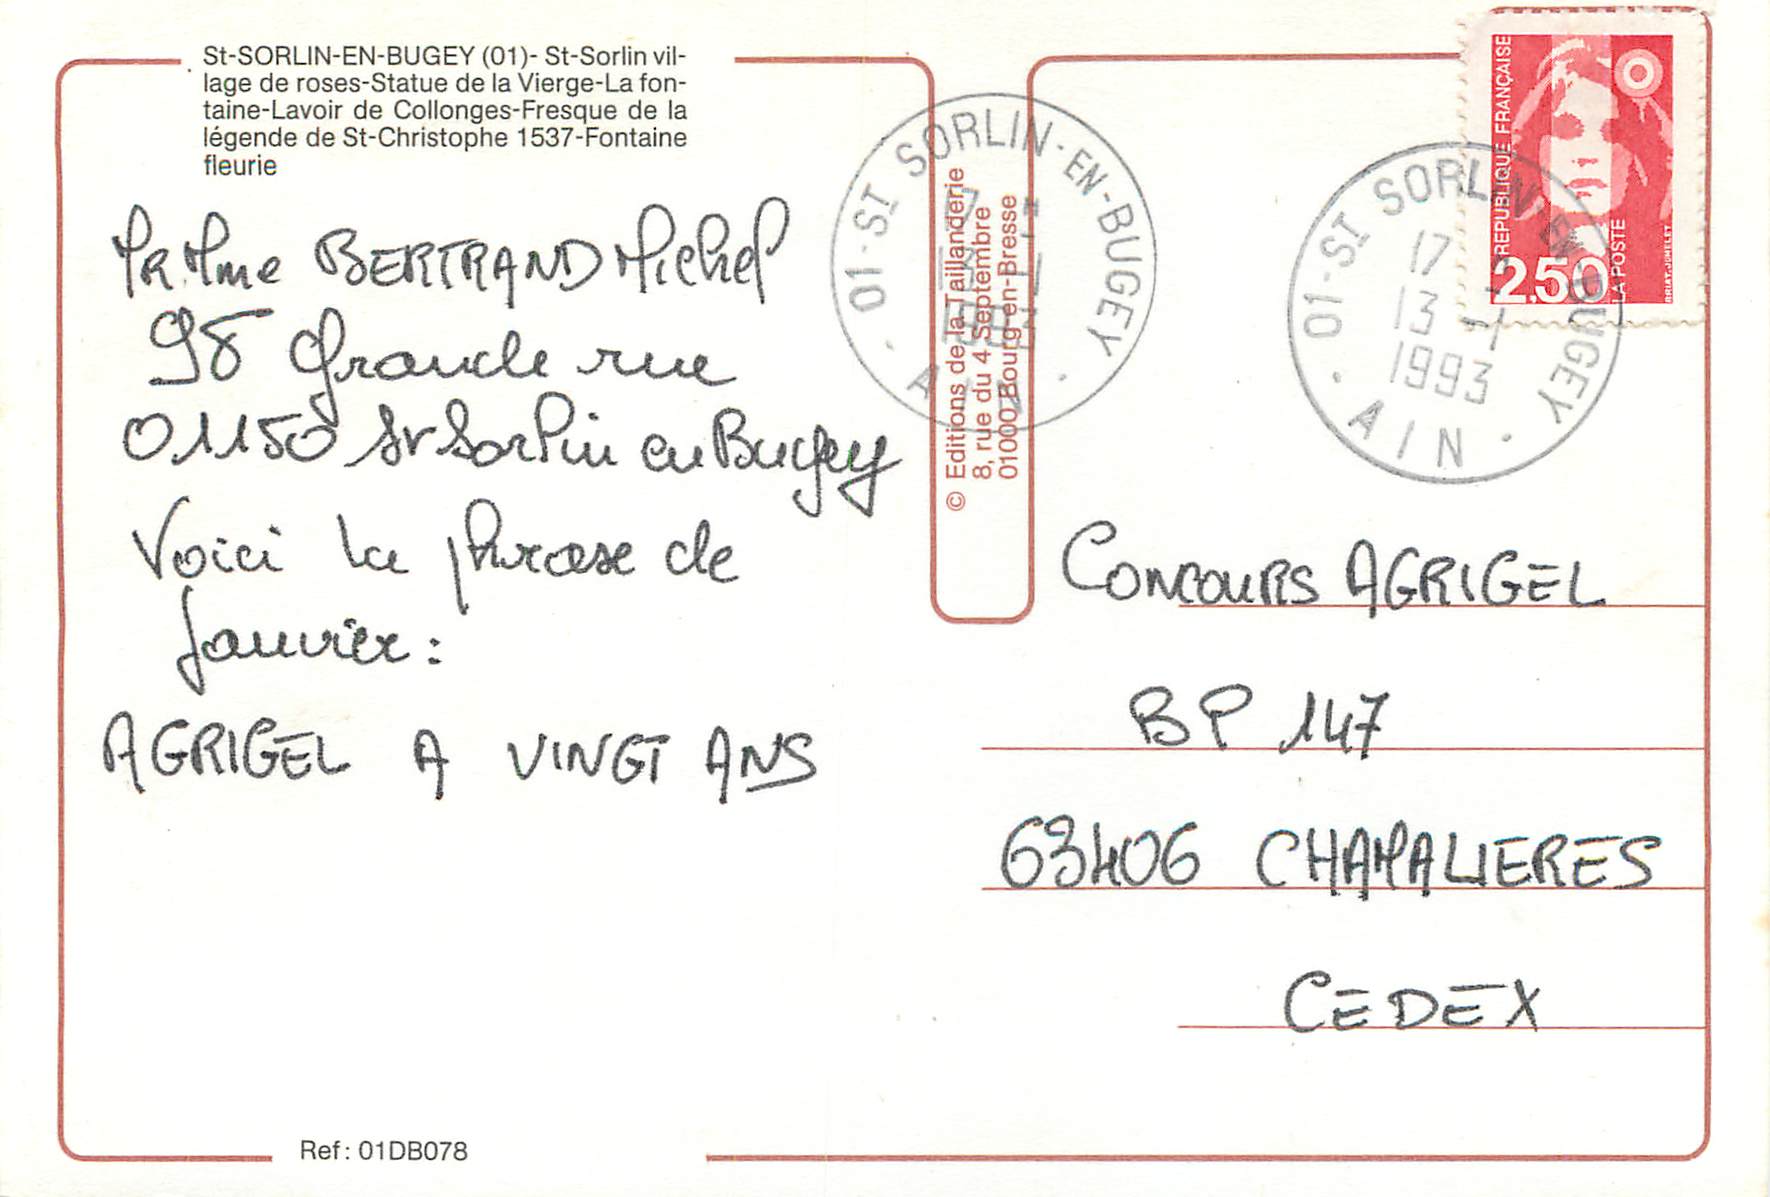 St-SORLIN-EN-BUGEY (01)- St-Sorlin vil-
lage de roses-Statue de la Vierge-La fon-
taine-Lavoir de Collonges-Fresque de la
légende de St-Christophe 1537-Fontaine
fleurie
MR.Mme BERTRAND Michel
98 Grande rue
01150 St Sorlin en Bugey
Voici la phrase de
Janvier :
AGRIGEL A VINGT ANS
Ref : 01DB078
© Editions de la Taillanderie
8, rue du 4 Septembre
01000 Bourg-en-Bresse
01-ST SORLIN-EN-BUGEY
1993
AIN
REPUBLIQUE FRANÇAISE
2,50
LA POSTE
BRIAT-JUMELET
01-ST SORLIN-EN-BUGEY
17
13 -1
1993
AIN
CONCOURS AGRIGEL
BP 147
63406 CHAMALIERES
CEDEX